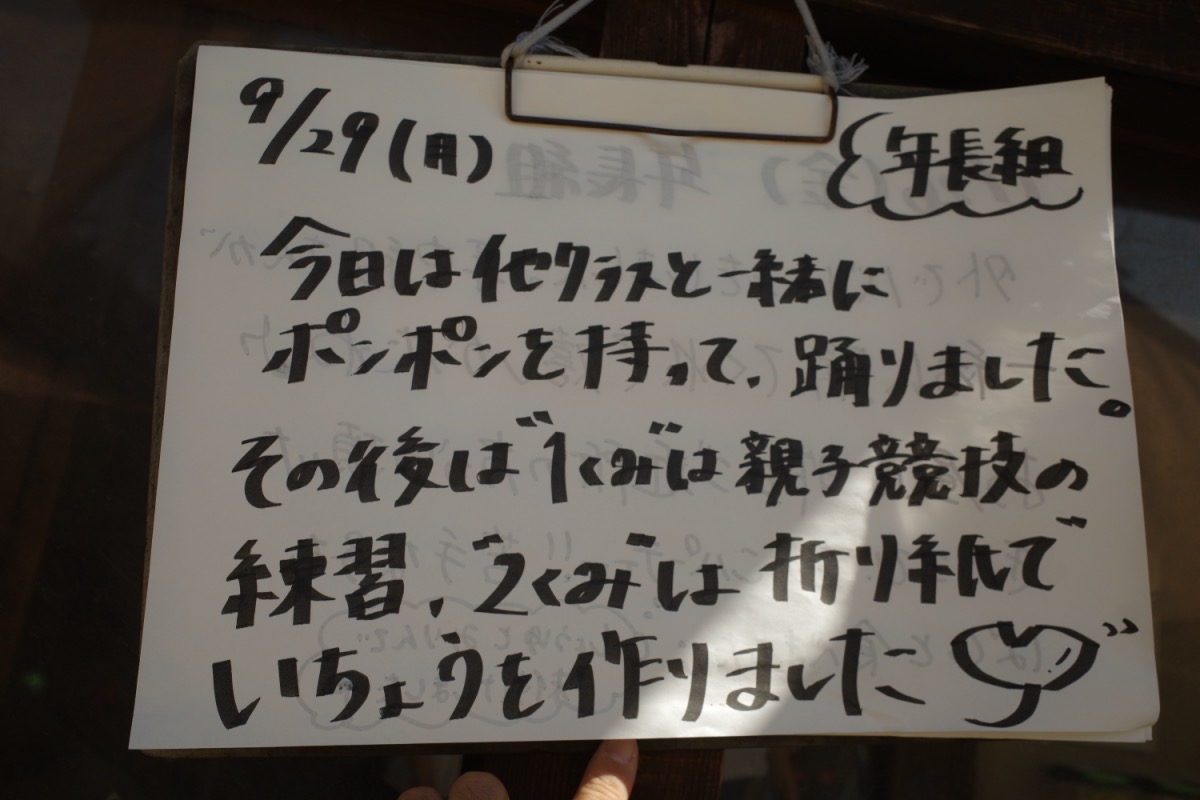 9/29(月)
年長組
今日は他クラスと一緒に
ポンポンを持って、踊りました。
その後は"1くみ"は親子競技の
練習、"2くみ"は折り紙で
いちょうを作りました